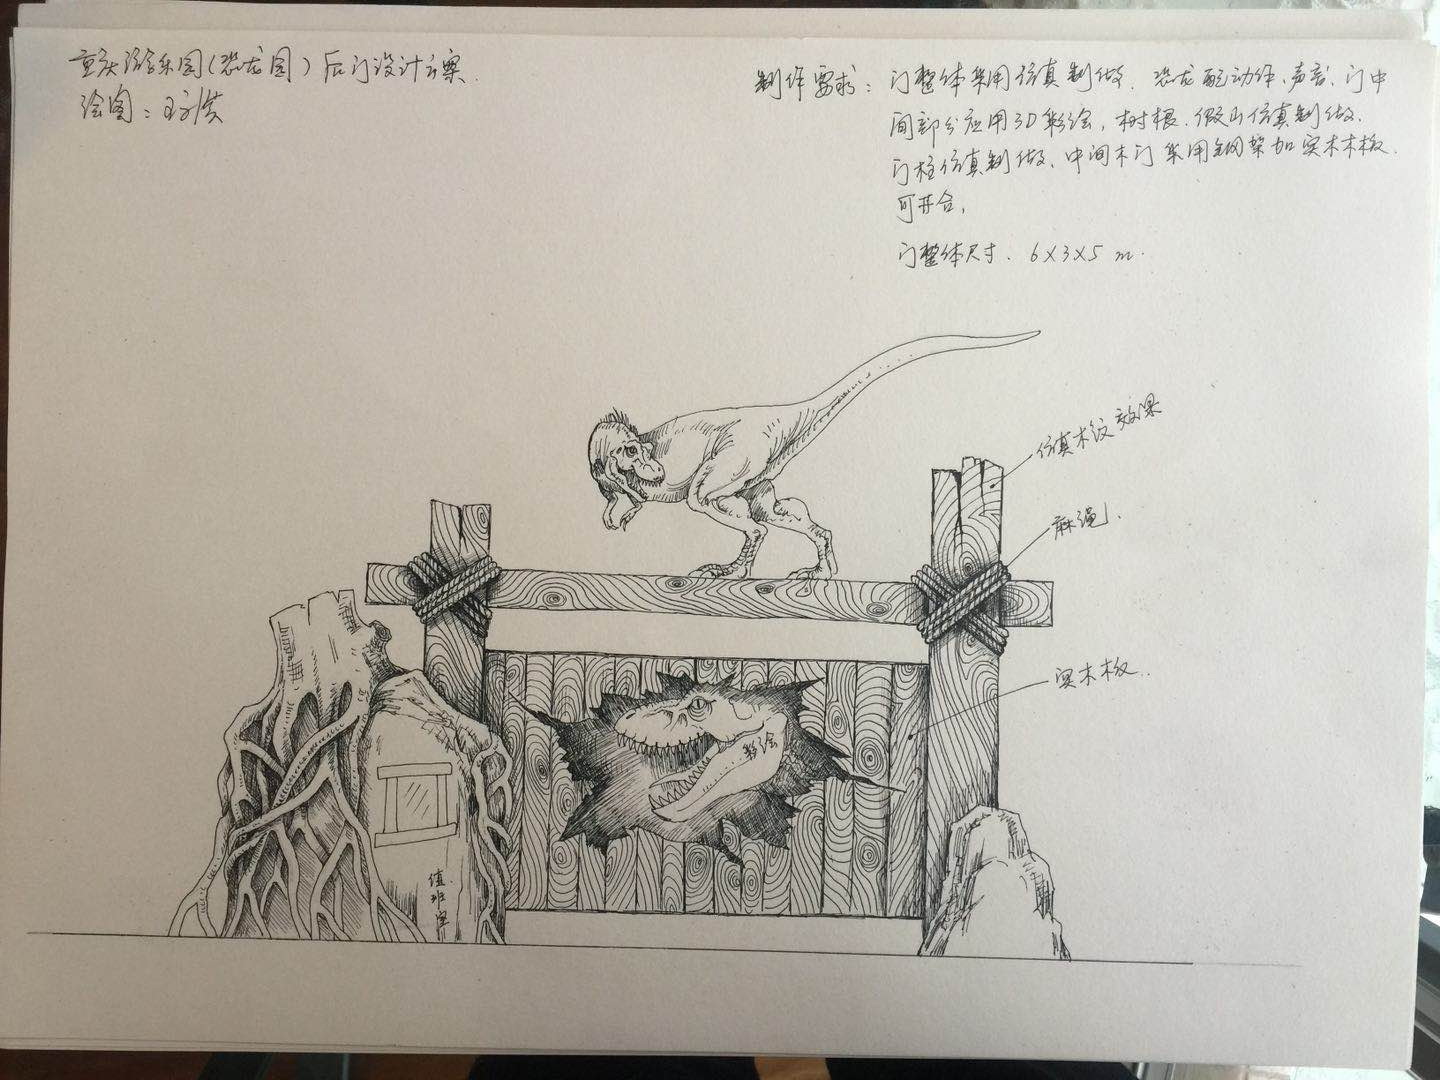 重庆游乐园(恐龙园)后门设计方案.
绘图:
制作要求: 门整体采用仿真制做. 恐龙配动作、声音、门中
间部分应用3D彩绘, 树根. 假山仿真制做.
门柱仿真制做、中间木门采用钢架加实木木板.
可开合,
门整体尺寸. 6X3X5 m.
仿真木纹效果
麻绳.
实木木板..
彩绘
值班室